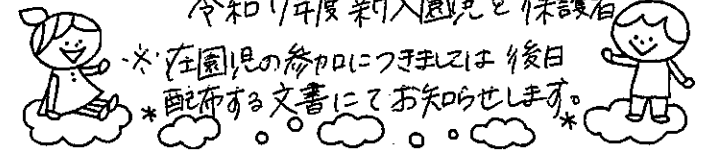 令和7年度新入園児と保護者
※在園児の参加につきましては後日
*配布する文書にてお知らせします。*